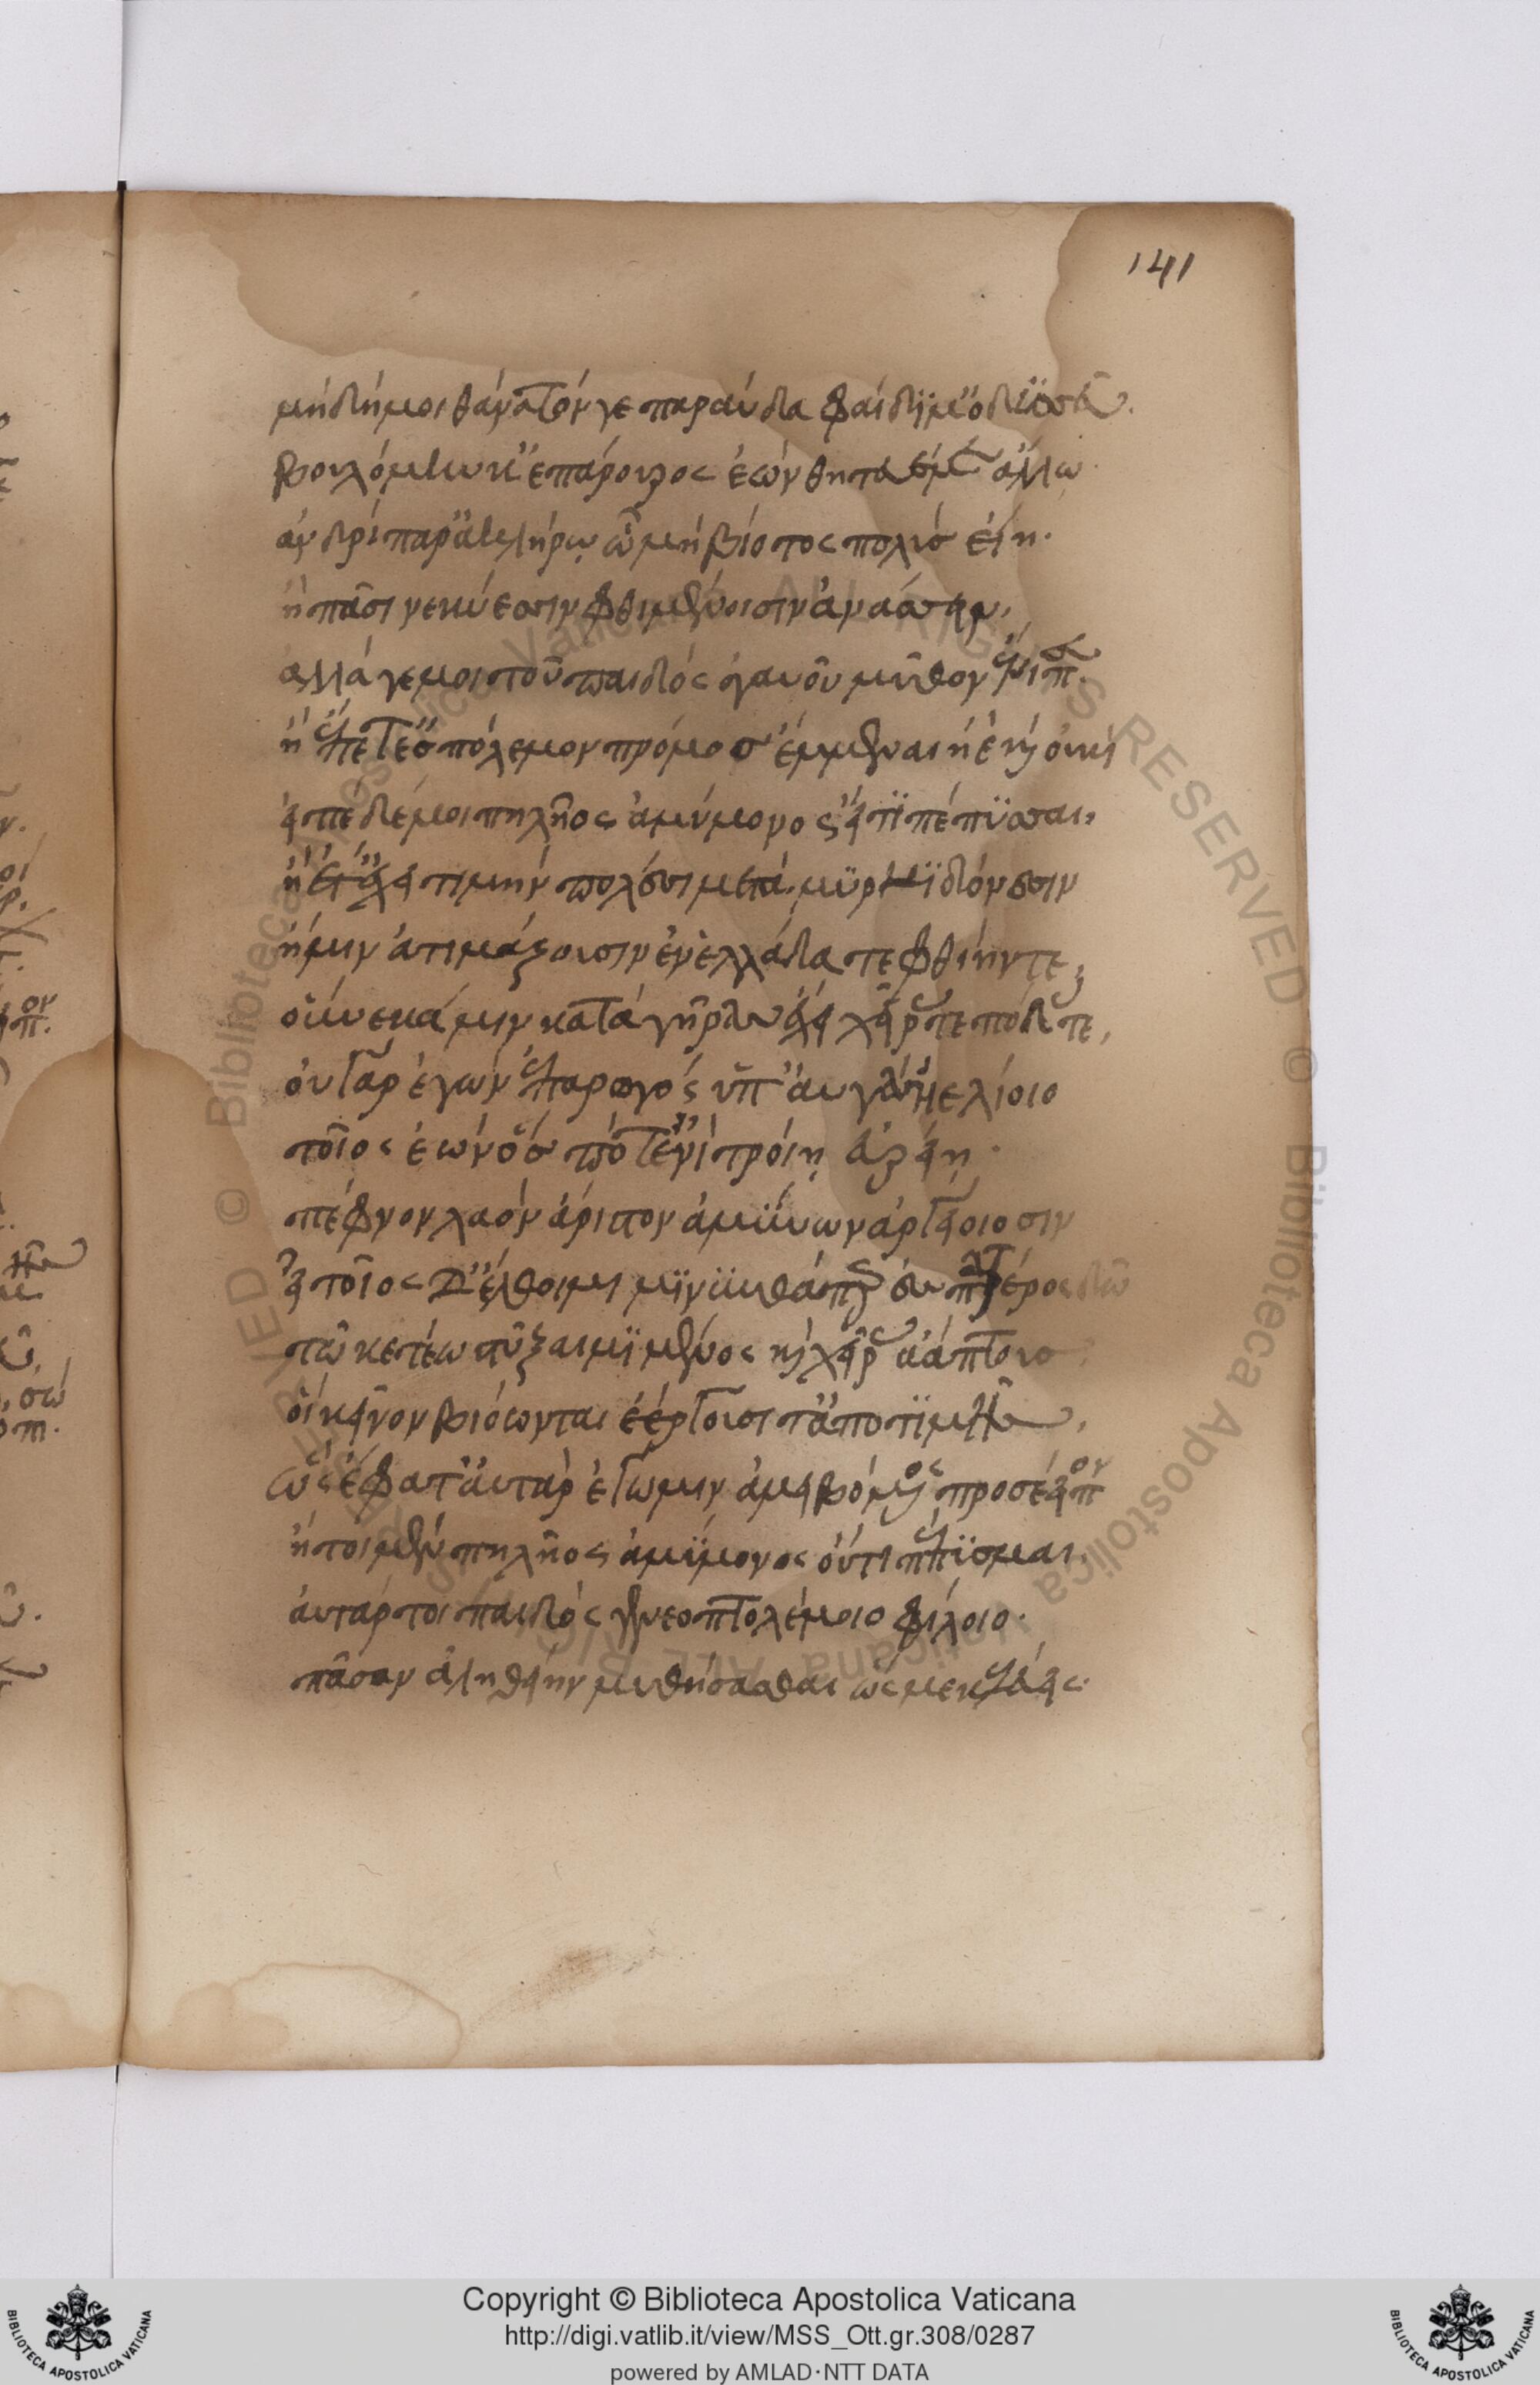 141
μὴ δή μοι θάνατόν γε παραύδα φαίδιμ' ὀδυσσεῦ.
βουλόμην κ' ἐπάρουρος ἐὼν θητευέμεν ἄλλω·
ἀνδρὶ παρ' ἀκλήρω ὧ μὴ βίοτος πολὺς εἴη·
ἢ πᾶσι νεκύεσσιν φθιμένοισιν ἀνάσσειν,
ἀλλά γέ μοι τοῦ παιδὸς ἀγαυοῦ μῦθον ἔνισπε.
ἢ ἕπετ' ἐς πόλεμον πρόμος ἔμμεναι ἠὲ καὶ οὐκί
εἰπὲ δέ μοι πηλῆος ἀμύμονος εἴ τι πέπυσσαι,
ἢ ἔτ' ἔχει τιμὴν πολέσι μετὰ μυρμιδόνεσσιν
ἤ μιν ἀτιμάζουσιν ἀν' ἑλλάδα τε φθίην τε,
οὕνεκά μιν κατὰ γῆρας ἔχει χεῖράς τε πόδας τε,
οὐ γὰρ ἐγὼν ἐπαρωγὸς ὑπ' αὐγὰς ἠελίοιο
τοῖος ἐὼν οἷός ποτ' ἐνὶ τροίη εὐρείη·
πέφνον λαὸν ἄριστον ἀμύνων ἀργείοισιν
εἰ τοῖος δ' ἔλθοιμι μίνυνθά περ ἐς πατέρος δῶ
τῶ κε τέω στύξαιμι μένος καὶ χεῖρας ἀάπτους
οἳ κεῖνον βιόωνται ἐέργουσί τ' ἀπὸ τιμῆς,
ὣς ἔφατ' αὐτὰρ ἐγώ μιν ἀμειβόμενος προσέειπον
ἤτοι μὲν πηλῆος ἀμύμονος οὔτι πέπυσμαι.
αὐτάρ τοι παιδός γε νεοπτολέμοιο φίλοιο·
πᾶσαν ἀληθείην μυθήσασθαι ὥς με κελεύεις·
Copyright © Biblioteca Apostolica Vaticana
http://digi.vatlib.it/view/MSS_Ott.gr.308/0287
powered by AMLAD·NTT DATA